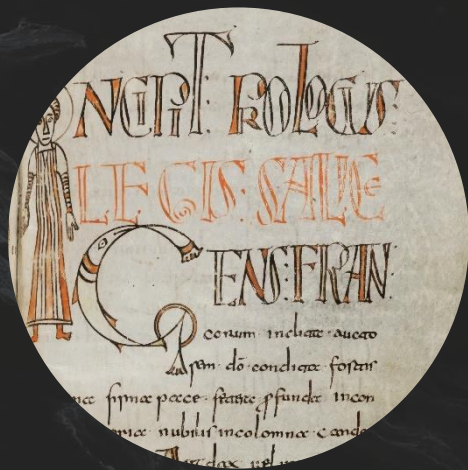 INCIPIT PROLOGUS:
LEGIS: SALICE
GENS: FRAN
corum · inclita · aucto
dō · condita fortis
firma pace · pfunda incon
nubilis incolomna · cando
dax